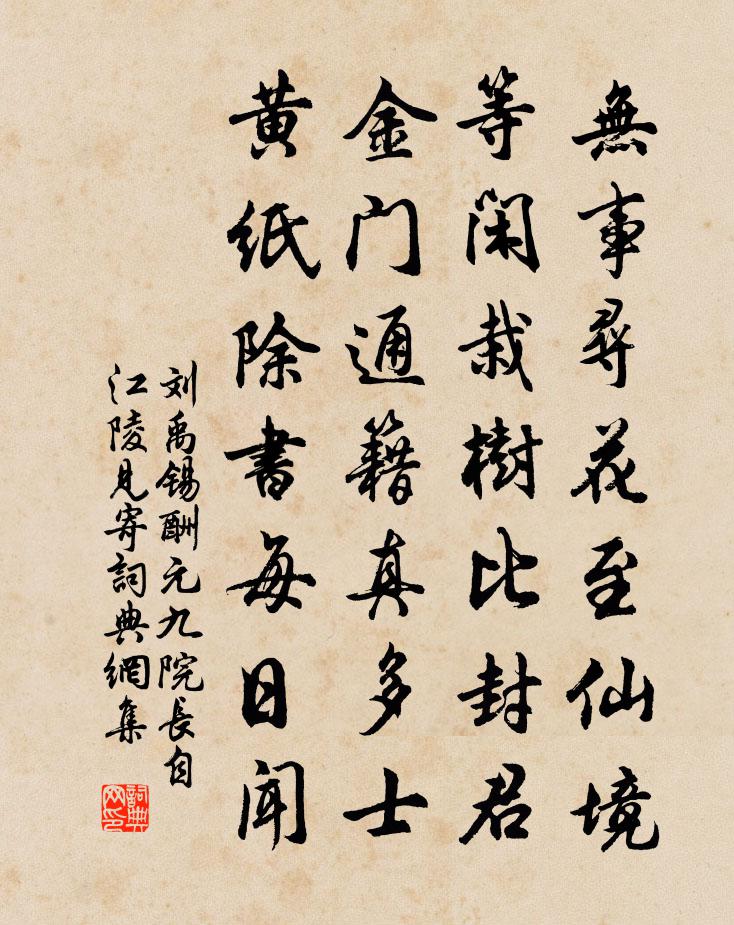 無事尋花至仙境
等閑栽樹比封君
金门通籍真多士
黄紙除書每日聞
刘禹锡酬元九院長自
江陵見寄詞典網集
詞典
网印